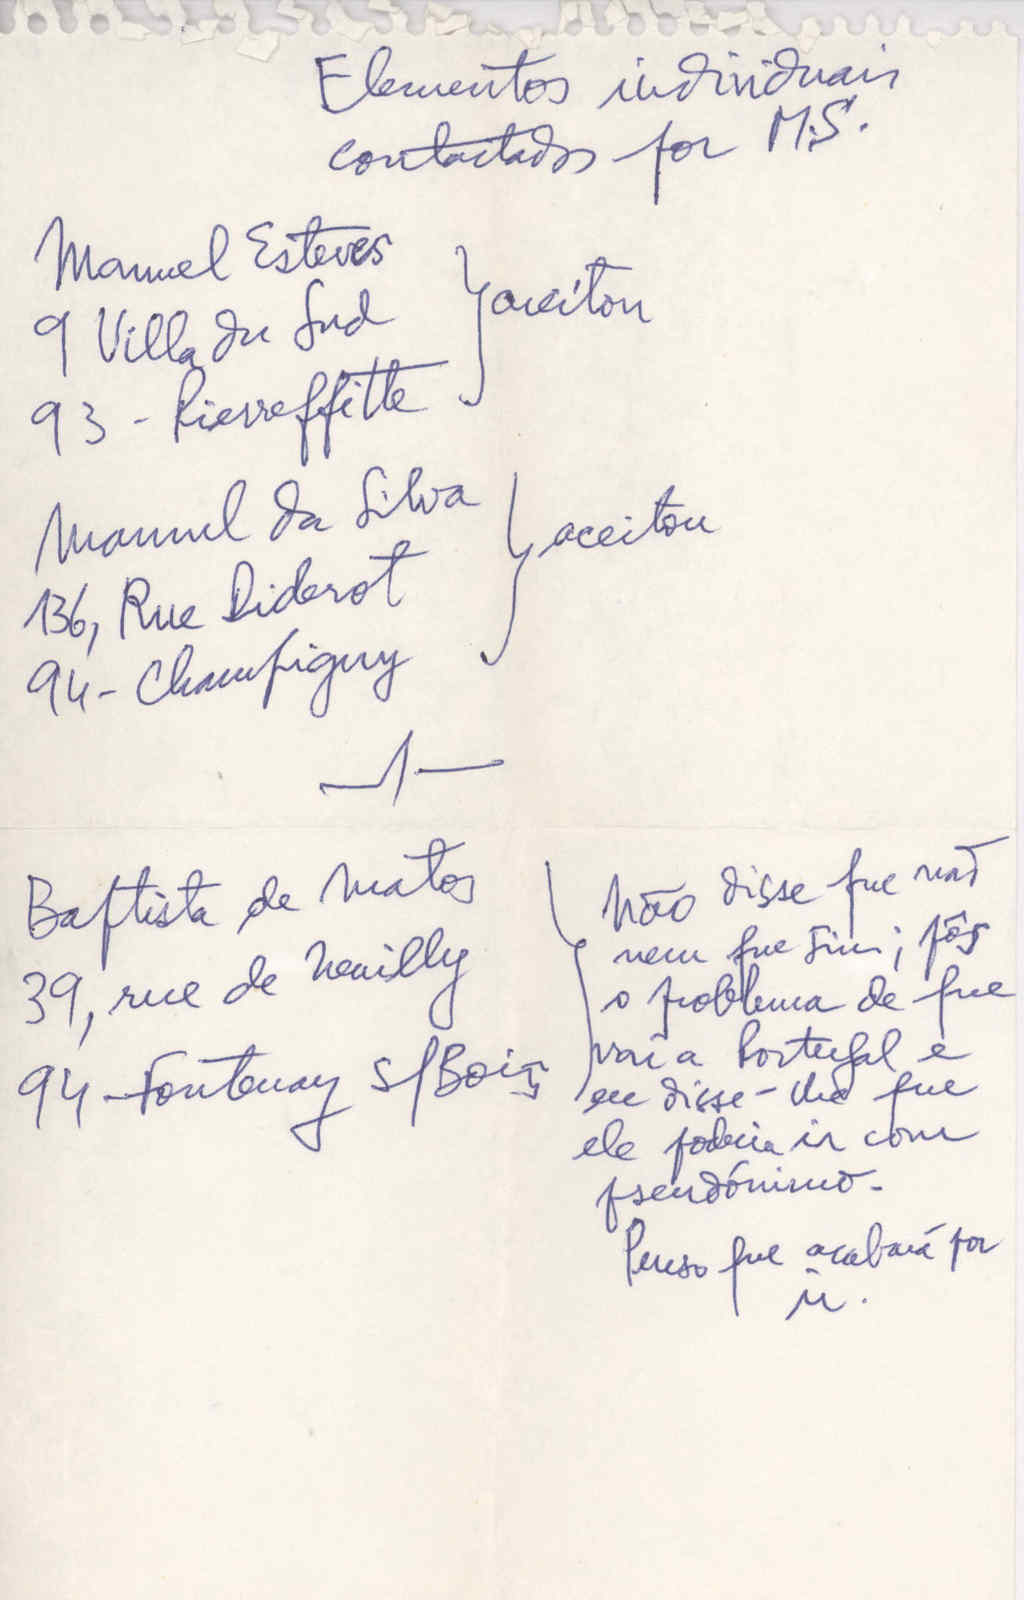 Elementos individuais
contactados por M.S.
Manuel Esteves
9 Villa du Sud
93 - Pierreffitte
aceitou
Manuel da Silva
136, Rue Diderot
94 - Champigny
aceitou
Baptista de Matos
39, rue de Neuilly
94 - Fontenay s/Bois
Não disse que não
nem que sim; pôs
o problema de que
vai a Portugal e
eu disse-lhe que
ele poderia ir com
pseudónimo.
Penso que acabará por
ir.